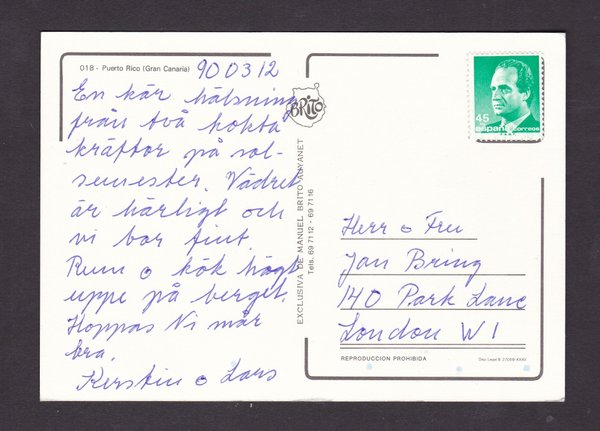 018 - Puerto Rico (Gran Canaria)
900312
En kär hälsning
från två kokta
kräftor på sol-
semester. Vädret
är härligt och
vi bor fint.
Rum o kök högt
uppe på berget.
Hoppas Ni mår
bra.
Kerstin o Lars
BRITO
EXCLUSIVA DE MANUEL BRITO AUYANET
Tels. 69 71 12 - 69 71 16
45
españa correos
Herr o Fru
Jan Bring
140 Park Lane
London W1
REPRODUCCION PROHIBIDA
Dep. Legal B. 27069-XXXV